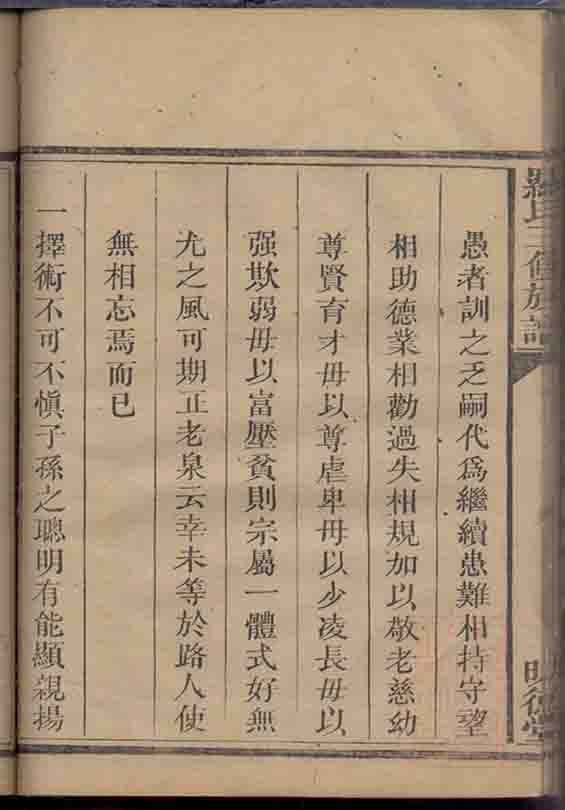 愚者訓之乏嗣代爲繼續患難相持守望
相助德業相勸過失相規加以敬老慈幼
尊賢育才毋以尊虐卑毋以少凌長毋以
强欺弱毋以富壓貧則宗屬一體式好無
尤之風可期正老泉云幸未等於路人使
無相忘焉而已
一擇術不可不慎子孫之聰明有能顯親揚
氏三修族譜
明德堂